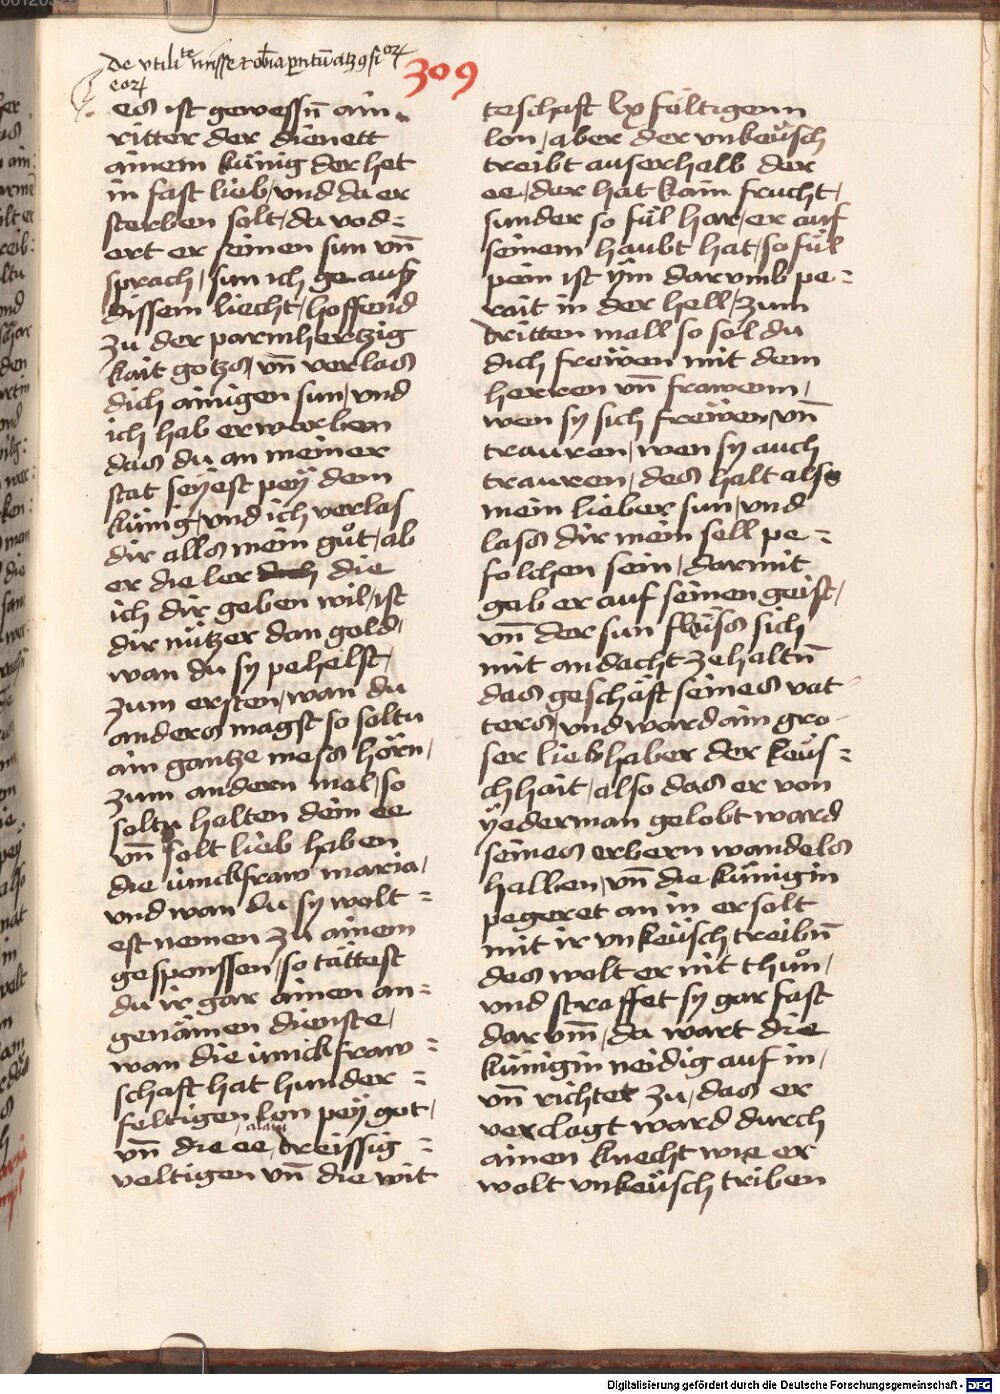 De vtilite misse
309
eor
es ist gewessn̄ ain
ritter der dienett
ainem künig der het
in fast lieb / vnd da er
sterben solt / da vod=
ert er seinen sun vn̄
sprach / sun ich ge auß
dissem liecht / hoffend
zu der parmhertzig
kait gotzs / vn̄ verlas
dich ainigen sun / vnd
ich hab erworben
das du an meiner
stat seÿest peÿ dem
künig / vnd ich verlas
dir alls mein guͦt / ab
er die ler die
ich dir geben wil / ist
dir nützer dan gold /
wan du sy pehelst /
zum ersten / wan du
anders magst so soltu
ain gantze mess hörn /
zum andern mal / so
soltu halten dein ee
vn̄ solt lieb haben
die iunckfraw maria /
vnd wan du sy wolt=
est nemen zu ainem
gesponssen / so tättest
du ir gar ainen an=
genämen dienste /
wan die iunckfraw=
schaft hat hunder=
feltigen lon peÿ got /
vn̄ die ee dreissig=
veltigen vn̄ die wit
teschaft lx fältigenn
lon / aber der vnkeüsch
treibt auserhalb der
ee / der hat kain frucht /
sunder so fül har / er auf
seinem haubt hat / so fül
pein ist ÿm darvmb pe=
rait in der hell / zum
dritten mall so sol du
dich freẅen mit dem
herren vn̄ frawenn /
wen sy sich freẅen / vn̄
trauren / wen sy auch
trauren / des halt also
mein lieber sun / vnd
lass dir mein sell pe=
folchen sein / darmit
gab er auf seinen geist /
vn̄ der sun flaiss sich
mit andacht zehaltn̄
das geschäft seines vat
ters / vnd ward ain gro
ser liebhaber der keüs=
chhait / also das er von
ÿederman gelobt ward
seines erbern wandels
halben / vn̄ die künigin
pegeret an in er solt
mit ir vnkeüsch treibn̄
des wolt er nit thuͦn /
vnd straffet sy gar fast
darvm̄ / da wart die
künigin neidig auf in /
vn̄ richtet zu / das er
verclagt ward durch
ainen knecht wie er
wolt vnkeüsch triben
Digitalisierung gefördert durch die Deutsche Forschungsgemeinschaft - DFG